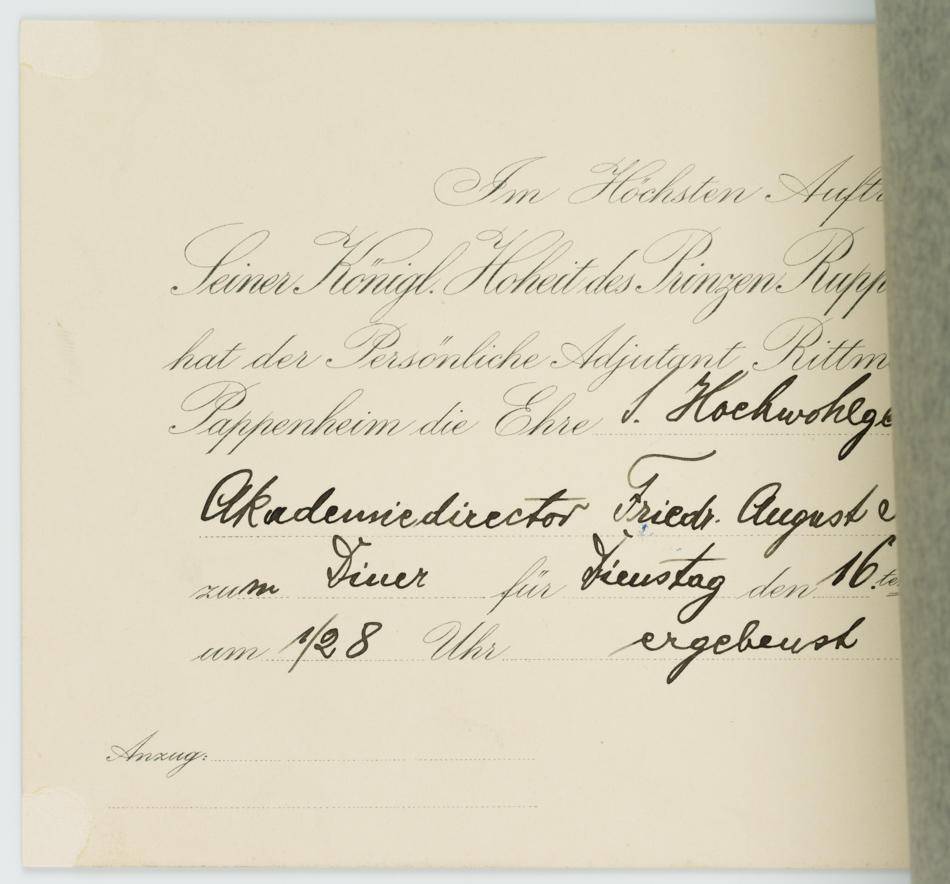 Im Höchsten Auftr
Seiner Königl. Hoheit des Prinzen Rupp
hat der Persönliche Adjutant Rittm
Pappenheim die Ehre S. Hochwohlge
Akademiedirector Friedr. August
zum Diner für Dienstag den 16.te
um 1/2 8 Uhr ergebenst
Anzug: